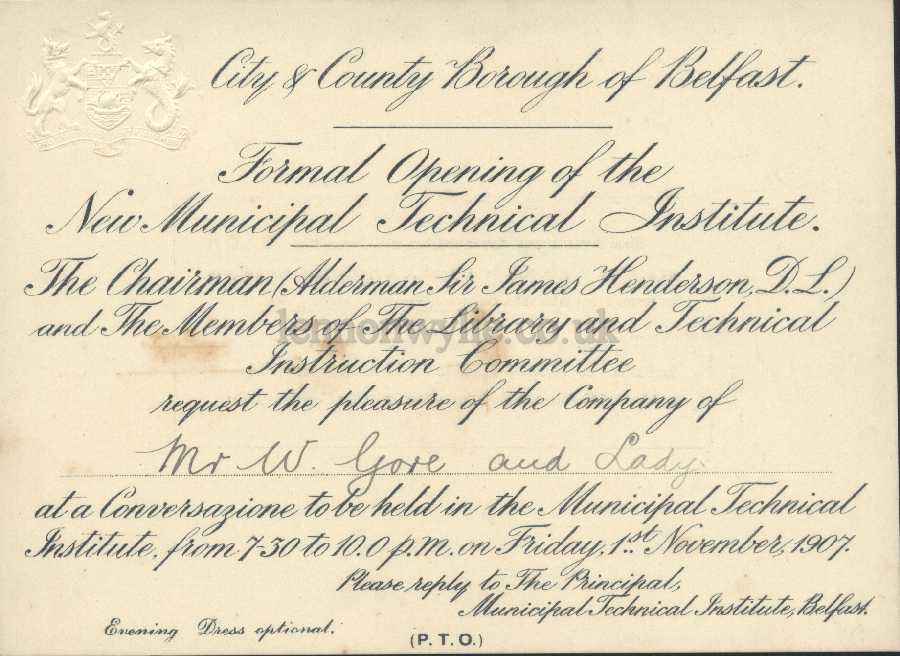 City & County Borough of Belfast.
Formal Opening of the
New Municipal Technical Institute.
The Chairman (Alderman Sir James Henderson, D.L.)
and The Members of The Library and Technical
Instruction Committee
request the pleasure of the Company of
Mr W. Gore and Lady
at a Conversazione to be held in the Municipal Technical
Institute, from 7-30 to 10.0 p.m. on Friday, 1st November, 1907.
Please reply to The Principal,
Municipal Technical Institute, Belfast.
Evening Dress optional.
(P.T.O.)